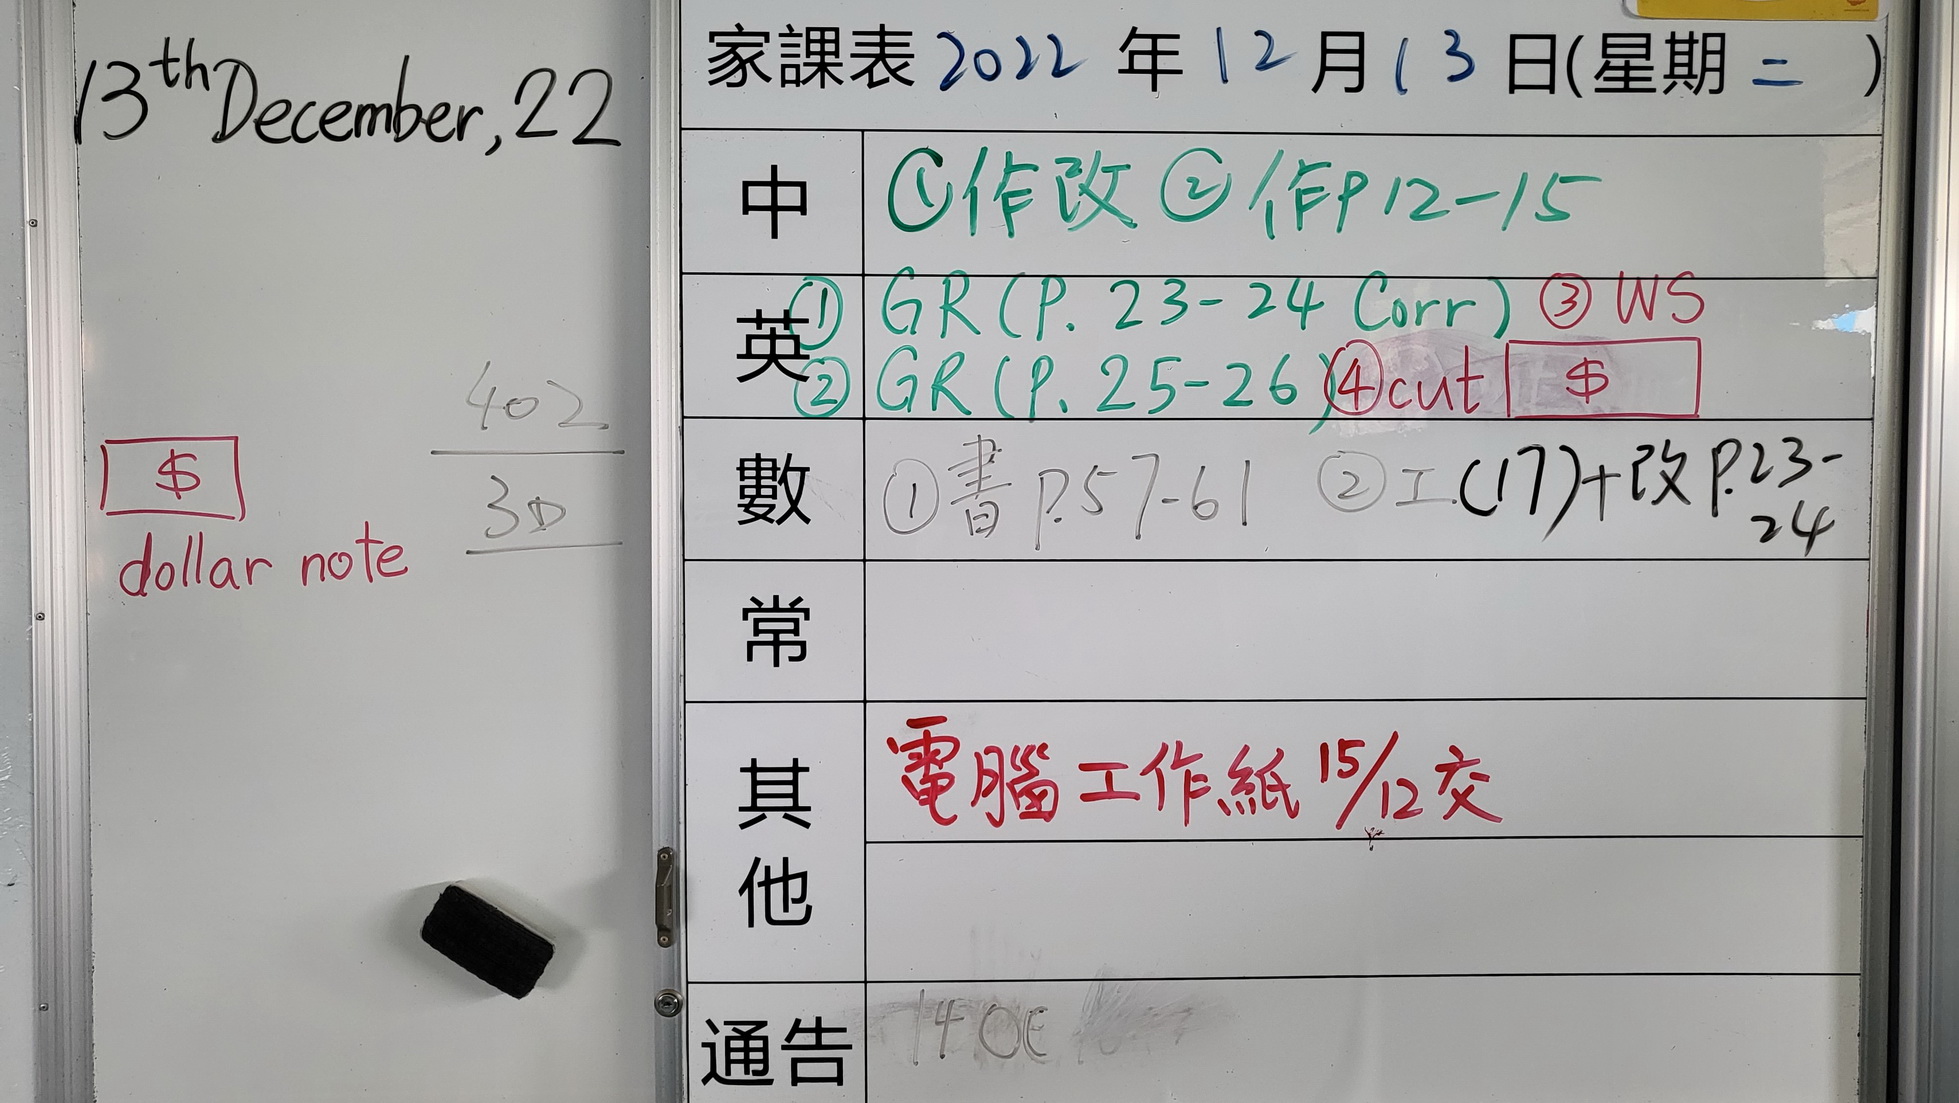 13th December, 22
402
3D
$
dollar note
家課表 2022 年 12 月 13 日(星期 二 )
中 ①作改 ②作P12-15
英 ① GR (P. 23-24 Corr) ③ WS
② GR (P. 25-26) ④cut $
數 ①書 P.57-61 ②工.(17)+改 P.23-
24
常
其他 電腦工作紙 15/12 交
通告